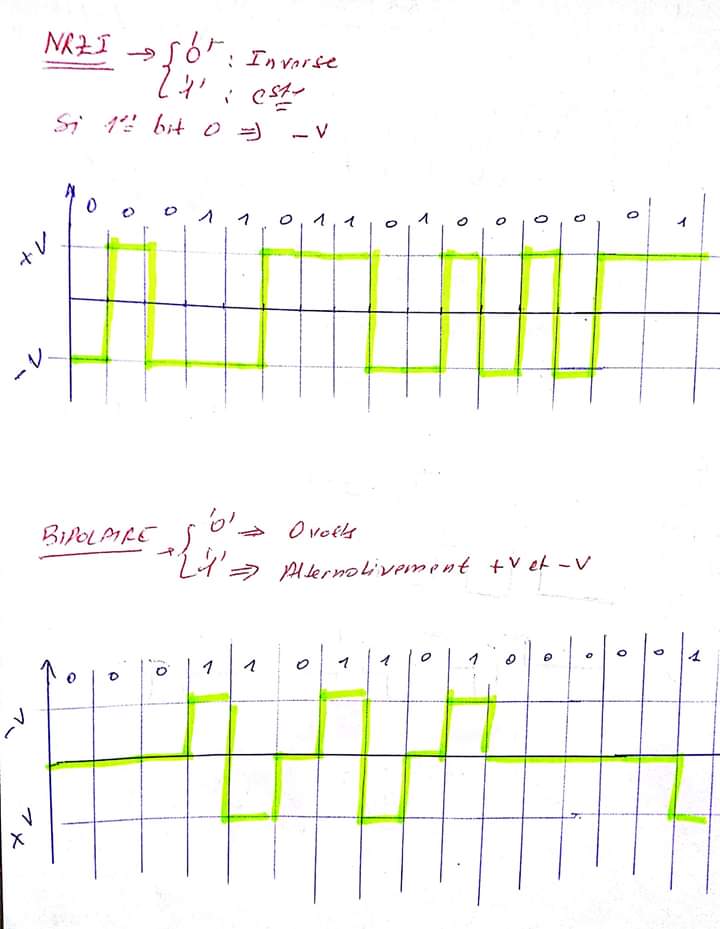 NRZI → { '0' : Inverse
'1' : cste
Si 1er bit 0 ⇒ -V
0 0 0 1 1 0 1 1 0 1 0 0 0 0 0 1
+V
-V
BIPOLAIRE → { '0' ⇒ 0 volts
'1' ⇒ Alternativement +V et -V
0 0 0 1 1 0 1 1 0 1 0 0 0 0 0 1
-V
+V